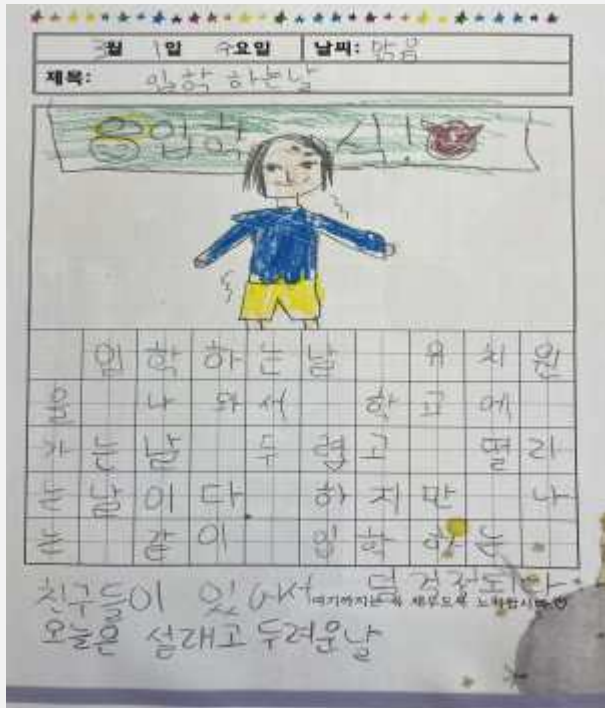 3월 1일 수요일 날씨: 맑음
제목: 입학 하는날
입학 식!
입학하는날 유치원
을 나와서 학교에
가는날 두렵고 떨리
는날이다. 하지만 나
는 같이 입학하는
친구들이 있어서 덜 걱정되다.
여기까지는 꼭 채우도록 노력합시다
오늘은 설래고 두려운날